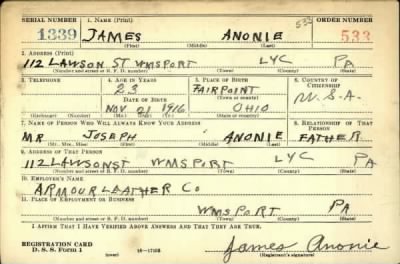 SERIAL NUMBER 1. NAME (Print) ORDER NUMBER
1339 JAMES ANONIE 533 533
(First) (Middle) (Last)
2. ADDRESS (Print)
112 LAWSON ST WMSPORT LYC PA
(Number and street or R. F. D. number) (Town) (County) (State)
3. TELEPHONE 4. AGE IN YEARS 5. PLACE OF BIRTH 6. COUNTRY OF CITIZENSHIP
23 FAIRPOINT U.S.A.
DATE OF BIRTH (Town or county)
NOV 01 1916 OHIO
(Exchange) (Number) (Mo.) (Day) (Yr.) (State or country)
7. NAME OF PERSON WHO WILL ALWAYS KNOW YOUR ADDRESS 8. RELATIONSHIP OF THAT PERSON
MR JOSEPH ANONIE FATHER
(Mr., Mrs., Miss) (First) (Middle) (Last)
9. ADDRESS OF THAT PERSON
112 LAWSON ST WMSPORT LYC PA
(Number and street or R. F. D. number) (Town) (County) (State)
10. EMPLOYER'S NAME
ARMOUR LEATHER CO
11. PLACE OF EMPLOYMENT OR BUSINESS
WMSPORT PA
(Number and street or R. F. D. number) (Town) (County) (State)
I AFFIRM THAT I HAVE VERIFIED ABOVE ANSWERS AND THAT THEY ARE TRUE.
REGISTRATION CARD
D. S. S. Form 1 (over) James Anonie
(Registrant's signature)